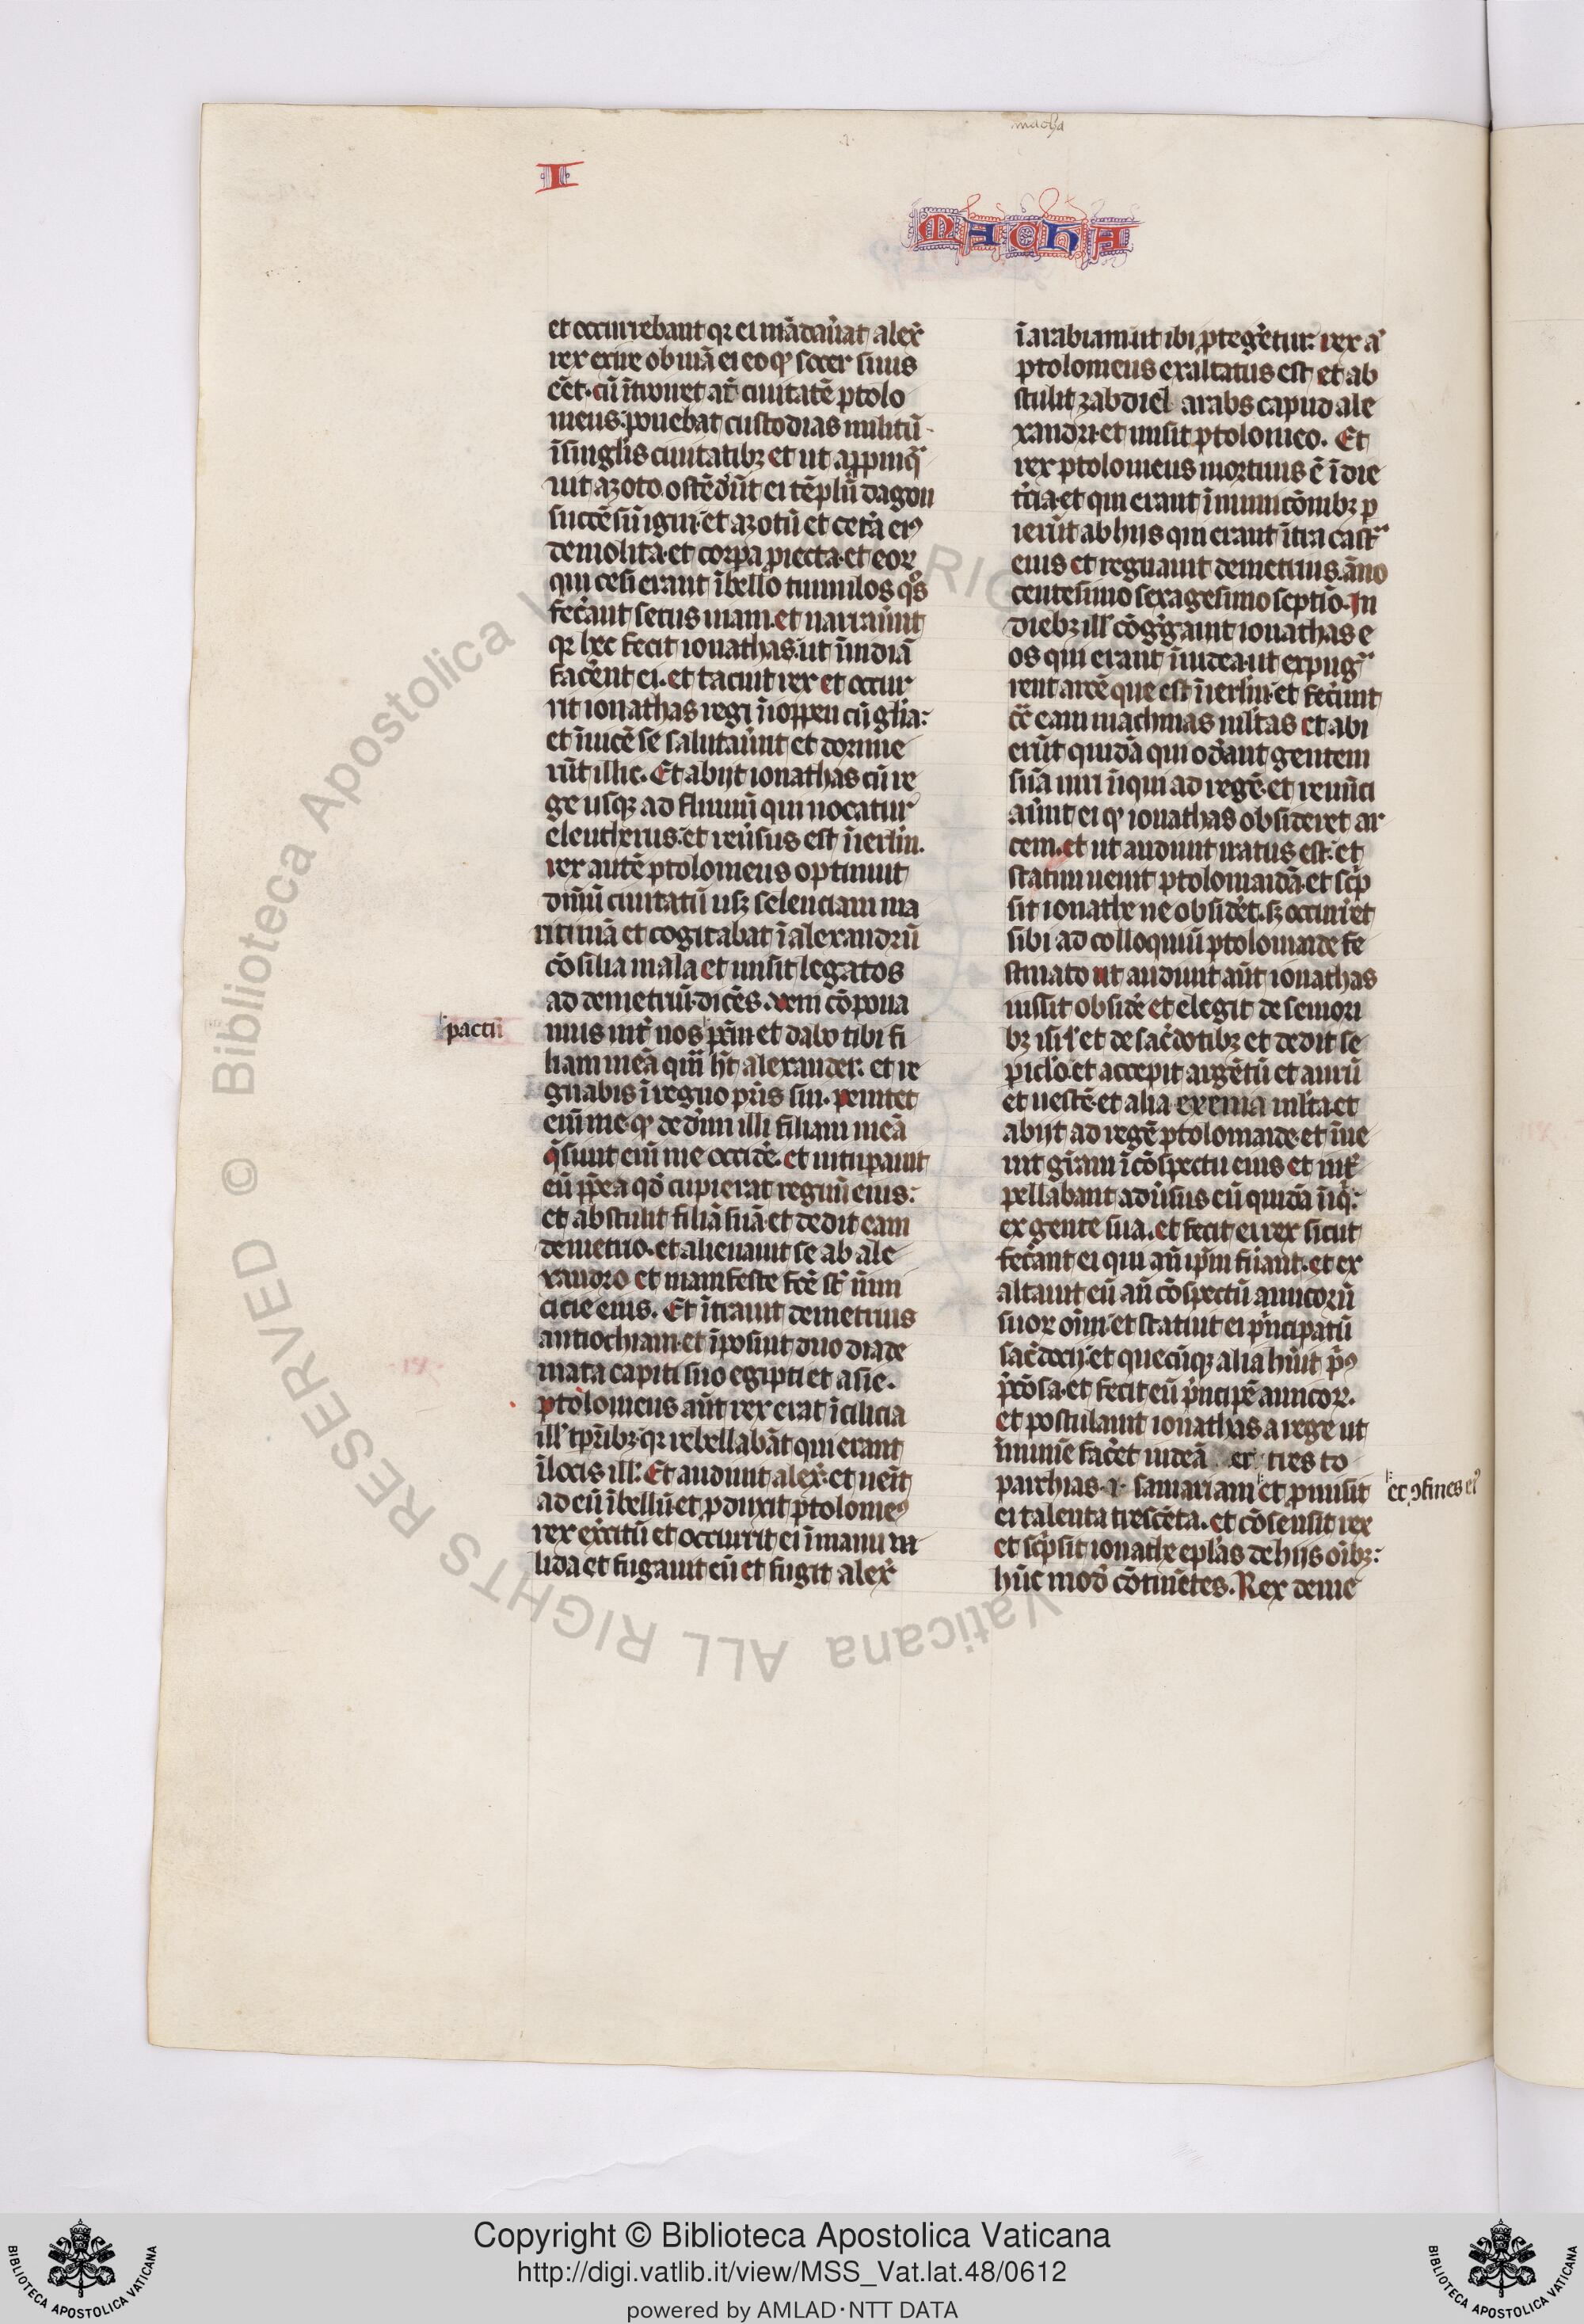 macha
I
MACHA
et occurrebant qꝛ ei mādau̅at alex̅
rex exire obuiā ei eo qꝫ socer suus
eēt. cū īt̅iouret at̅ ciuitatē ptolo
meus: ponebat custodias militū
ī singl̅is ciuitatibꝫ et ut app̅inqͣ
uit azoto. ostēder̅ūt ei tēplū dagon
succēsū igni. et azotū et cet̅a eiꝰ
demolita. et corꝑa ꝓiecta. et eoꝝ
qui cesi erant ī bello tumulos qͦs
fec̅ant secus uiam. et narrau̅nt
qꝛ hec fecit ionathas. ut ī̅uidiā
facer̅ent ei. et tacuit rex et occur
rit ionathas regi ī ioppen cū gl̅ia:
et īuicē se salutau̅nt et dormie
rūt illic. Et abijt ionathas cū re
ge usqꝫ ad fluuiū qui uocatur
eleutherus. et reu̅sus est ī ierl̅m.
rex autē ptolomeus optinuit
dn̅iū ciuitatū usqꝫ seleuciam ma
ritimā et cogitabat ī alexandrū
cōsilia mala et misit legatos
ad demetriū. dicēs. Veni cōpona
pactū
mus int̅ nos pc̅m et dabo tibi fi
liam meā qm̅ h̅t alexander. et re
gnabis ī regno pr̅is tui. penitet
eni̅ me. qꝫ dedi̅m illi filiam meā
qͣsiuit eni̅ me occide̅. et uitupauit
eū ꝓp̅ea qd̅ cupierat regnū eius:
et abstulit filiā suā. et dedit eam
demetrio. et alienauit se ab ale
xandro et manifeste fc̅e st̅ inimi
citie eius. Et ītrauit demetrius
antiochiam. et īposuit duo diade
mata capiti suo egipti et asie.
ptolomeus au̅t rex erat ī cilicia
ill' tp̅ribꝫ. qꝛ rebellabāt qui erant
ī locis ill'. Et audiuit alex̅. et uēit
ad eū ī bellū. et ꝓduxit ptolomeꝰ
rex ex̅citū et occurrit ei ī manu ua
lida et fugauit eū et fugit alex̅
ī arabiam. ut ibi ꝓteger̅etur. rex aͣ
ptolomeus exaltatus est et ab
stulit zabdiel arabs capud ale
xandri. et misit ptolomeo. Et
rex ptolomeus mortuus ē ī die
tc̅ia. et qui erant ī municōnibꝫ ꝑ
ierūt ab hijs qui erant īt̅ra castͣ
eius et regnauit demetrius. āno
centesimo sexagesimo septīo. In
diebꝫ ill' cōgg̅auit ionathas e
os qui erant ī iudea. ut expugͣ
rent arcē que est ī ierl̅m. et fecer̅unt
cͨ eam machinas ml̅tas et abi
erūt quidā qui oder̅ant gentem
suā uiri īiqui ad regē. et renūci
au̅nt ei qꝫ ionathas obsideret ar
cem. et ut audiuit iratus est. et
statim uenit ptolomaidā. et scͥp
sit ionathe ne obsider̅et. sꝫ occurr̅et
sibi ad colloquiū ptolomaide fe
stinato ut audiuit au̅t ionathas
iussit obsider̅e et elegit de seniori
bꝫ isrl̅ et de sac̅dotibꝫ et dedit se
picl̅o. et accepit argētū et aurū
et uestē. et alia exenia ml̅ta. et
abijt ad regē ptolomaide. et īue
nit gr̅am ī cōspectu eius et int̅
pellabant aduersus eū quidā īiqͥ:
ex gente sua. et fecit ei rex sicut
fecer̅ant ei qui an̅ ip̅m fu̅ant. et ex
altauit eū an̅ cōspectū amicorū
suoꝝ oi̅m. et statuit ei pͥncipatū
sac̅docij. et quecūqꝫ alia huit pͥꝰ
pͨ̅osa. et fecit eū pͥncipē amicoꝝ.
et postulauit ionathas a rege ut
īmunē facer̅et iudeā et tres to
parchias. ⁊. samariam et ꝓmisit
et ꝯfines eiꝰ
ei talenta trescēta. et cōsensit rex
et scͥpsit ionathe epl̅as de hijs oi̅bꝫ:
hūc modū cōtinētes. Rex deme
Copyright © Biblioteca Apostolica Vaticana
http://digi.vatlib.it/view/MSS_Vat.lat.48/0612
powered by AMLAD·NTT DATA
BIBLIOTECA APOSTOLICA VATICANA
BIBLIOTECA APOSTOLICA VATICANA
© Biblioteca Apostolica Vaticana ALL RIGHTS RESERVED